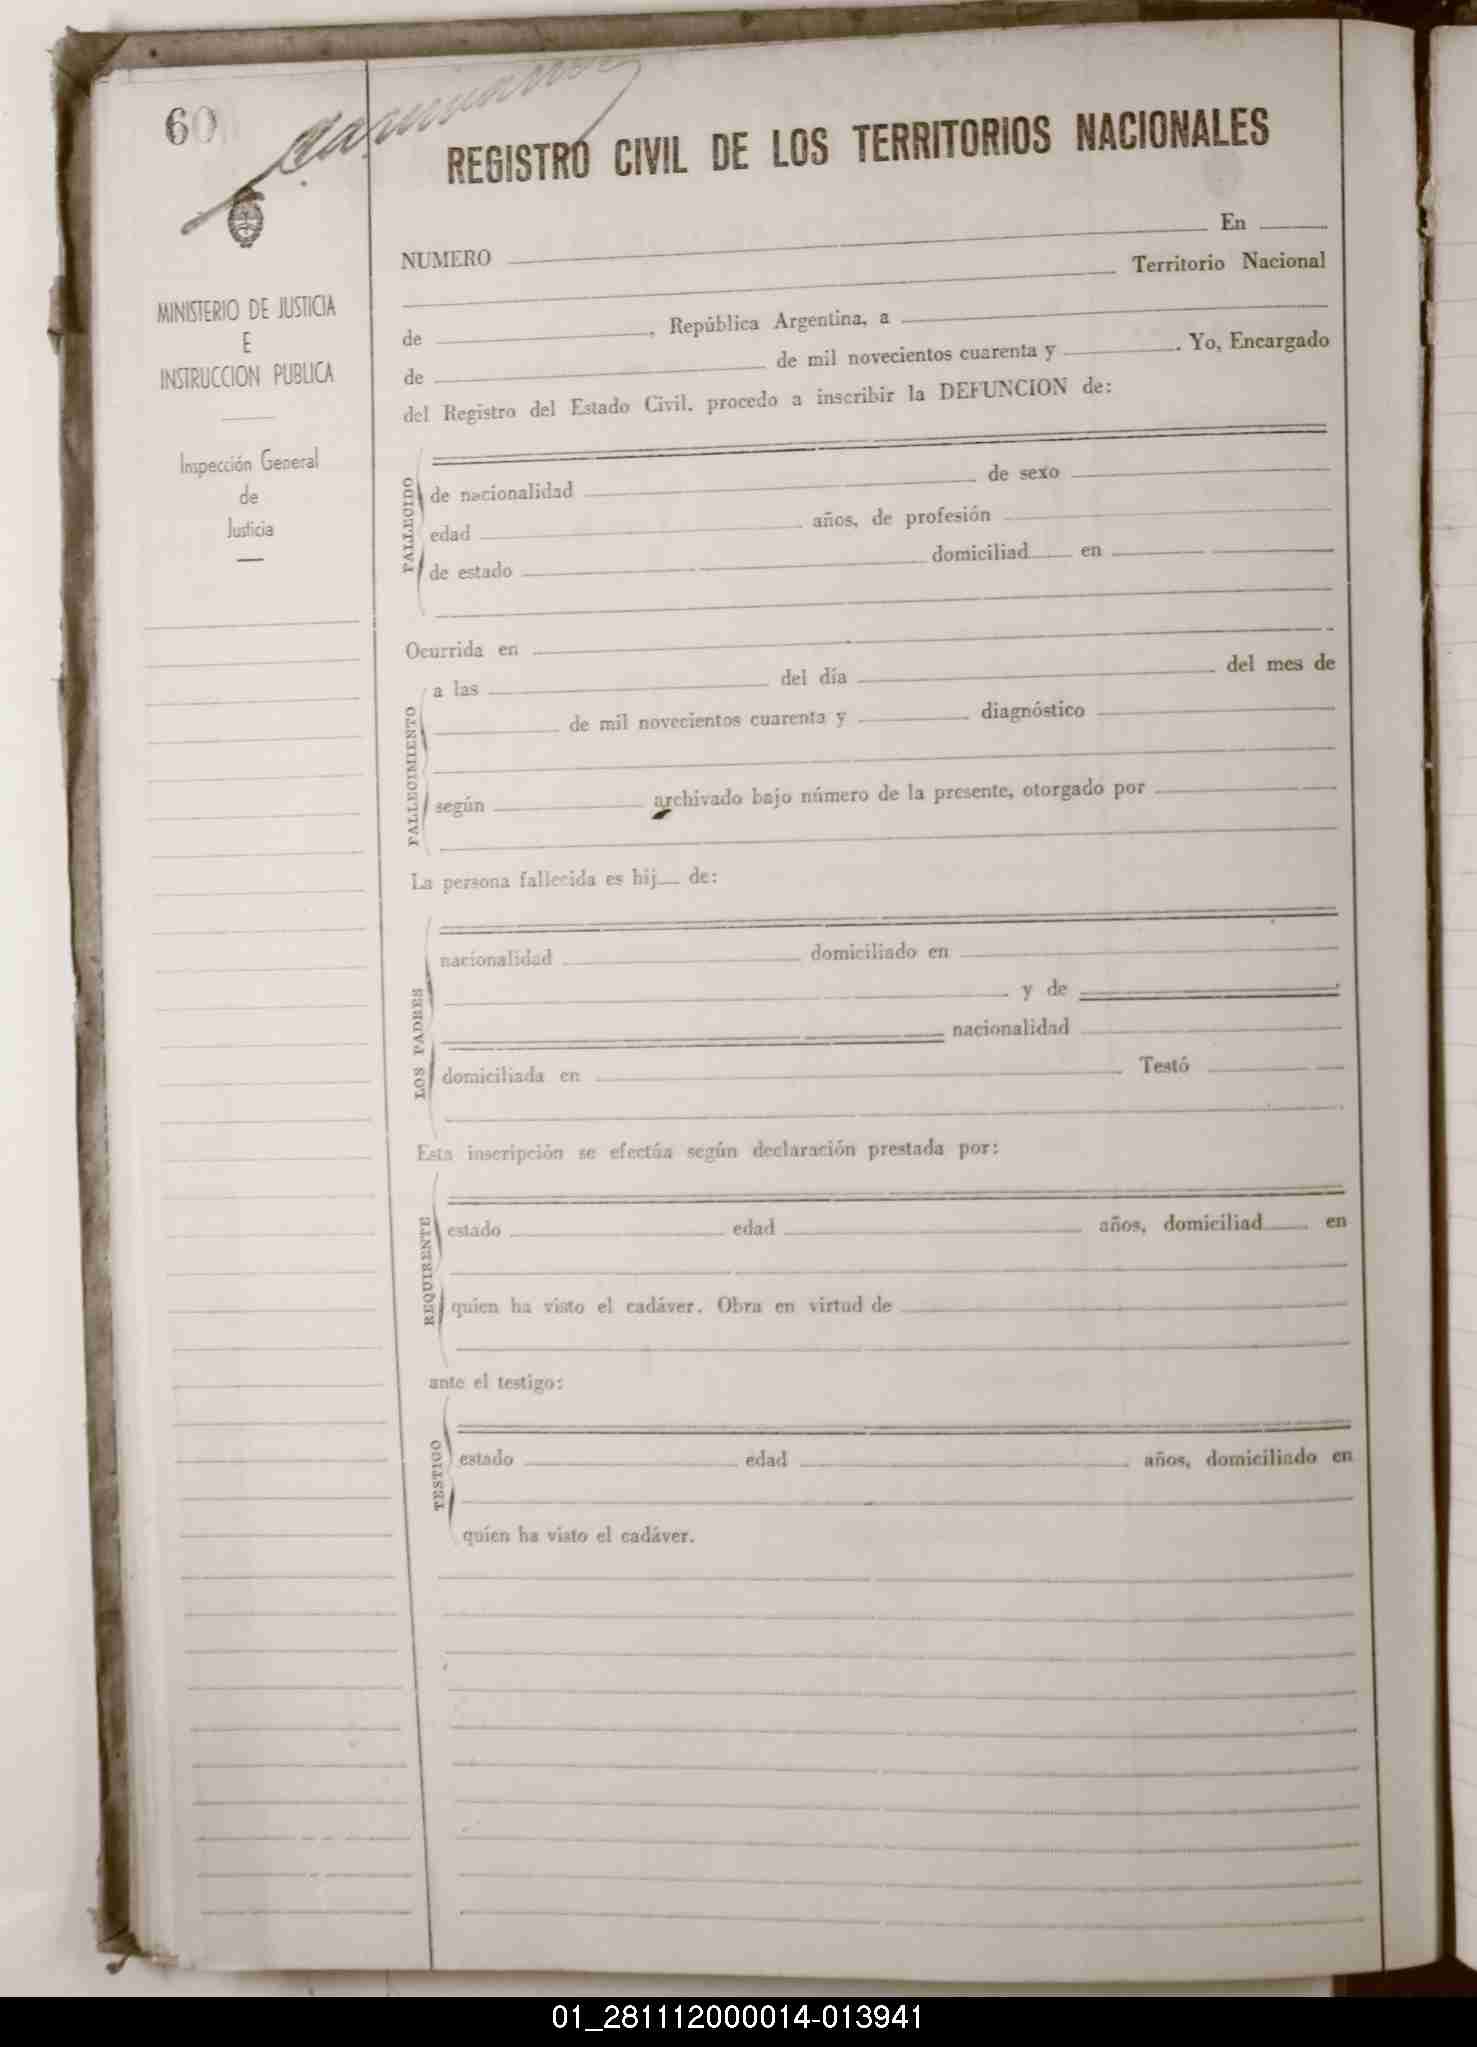 60
REGISTRO CIVIL DE LOS TERRITORIOS NACIONALES
MINISTERIO DE JUSTICIA
E
INSTRUCCION PUBLICA
Inspección General
de
Justicia
NUMERO En
Territorio Nacional
de , República Argentina, a
de de mil novecientos cuarenta y . Yo, Encargado
del Registro del Estado Civil, procedo a inscribir la DEFUNCION de:
FALLECIDO
de nacionalidad de sexo
edad años, de profesión
de estado domiciliad en
Ocurrida en
FALLECIMIENTO
a las del día del mes de
de mil novecientos cuarenta y diagnóstico
según archivado bajo número de la presente, otorgado por
La persona fallecida es hij de:
LOS PADRES
nacionalidad domiciliado en
y de
nacionalidad
domiciliada en Testó
Esta inscripción se efectúa según declaración prestada por:
REQUIRENTE
estado edad años, domiciliad en
quien ha visto el cadáver. Obra en virtud de
ante el testigo:
TESTIGO
estado edad años, domiciliado en
quien ha visto el cadáver.
01_281112000014-013941